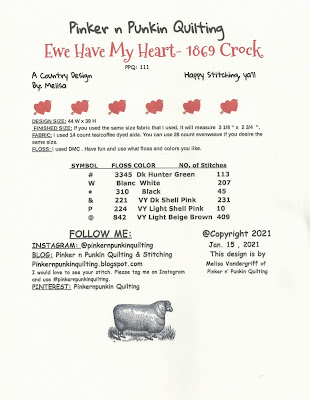 Pinker n Punkin Quilting
Ewe Have My Heart- 1869 Crock
PPQ: 111
A Country Design
By: Melisa
Happy Stitching, ya'll
DESIGN SIZE: 44 W x 39 H
FINISHED SIZE: if you used the same size fabric that I used, it will measure 3 1/8 " x 2 3/4 ".
FABRIC: I used 14 count tea/coffee dyed aida. You can use 28 count evenweave if you desire the
same size.
FLOSS: I used DMC . Have fun and use what floss and colors you like.
SYMBOL FLOSS COLOR NO. of Stitches
# 3345 Dk Hunter Green 113
W Blanc White 207
310 Black 45
& 221 VY Dk Shell Pink 231
P 224 VY Light Shell Pink 10
@ 842 VY Light Beige Brown 409
FOLLOW ME:
INSTAGRAM: @pinkernpunkinquilting
BLOG: Pinker n Punkin Quilting & Stitching
Pinkernpunkinquilting.blogspot.com
I would love to see your stitch. Please tag me on Instagram
and use #pinkernpunkinquilting
PINTEREST: Pinkernpunkin Quilting
@Copyright 2021
Jan. 15 , 2021
This design is by
Melisa Vandergriff of
Pinker n' Punkin Quilting